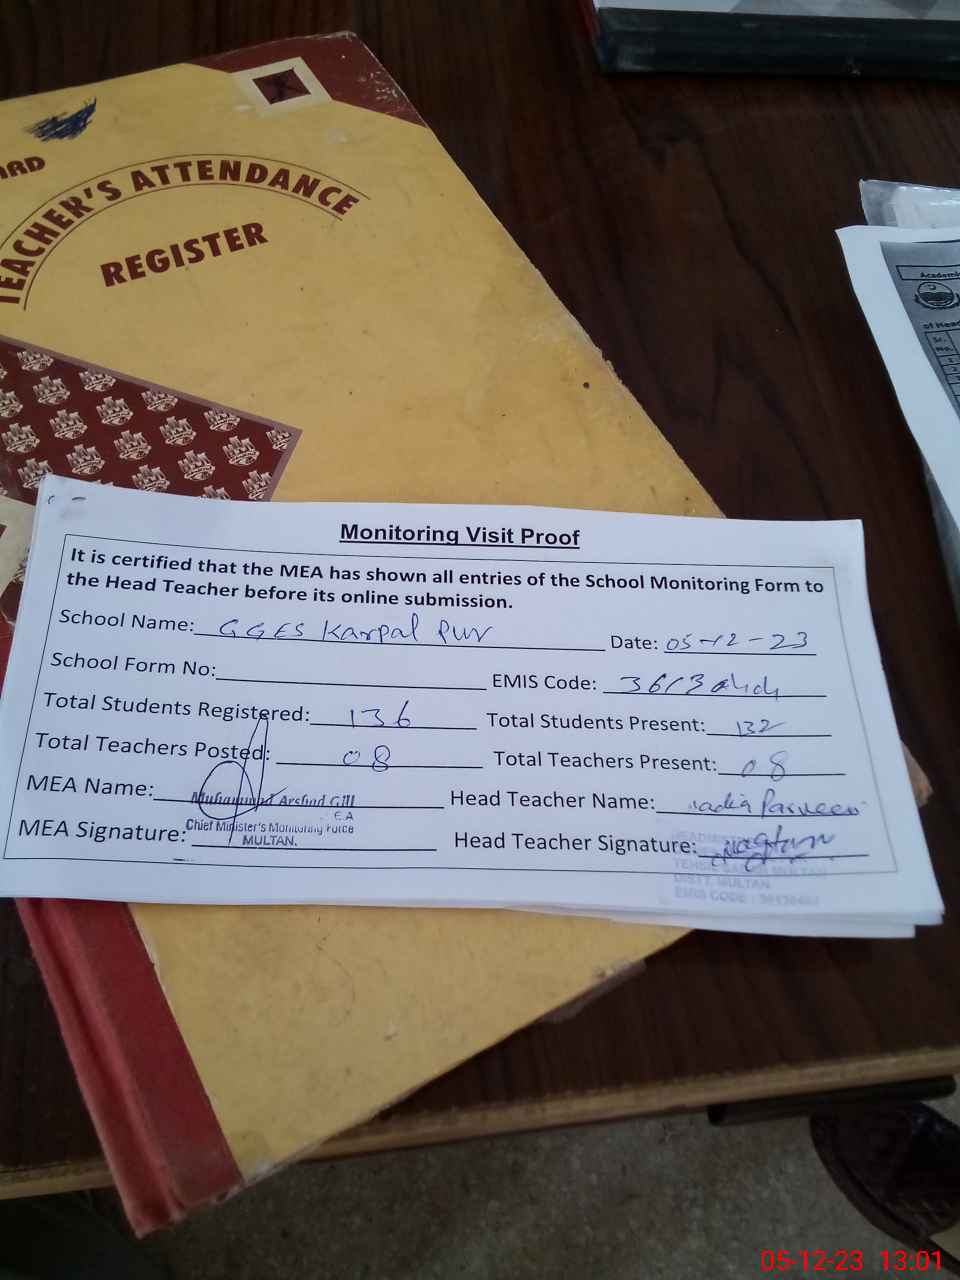 TEACHER'S ATTENDANCE
REGISTER
Academi
of Head
Sr.
No.
1
2
3
Monitoring Visit Proof
It is certified that the MEA has shown all entries of the School Monitoring Form to
the Head Teacher before its online submission.
School Name: GGES Karpal Pur Date: 05-12-23
School Form No: EMIS Code:
Total Students Registered: 136 Total Students Present: 132
Total Teachers Posted: 08 Total Teachers Present: 08
MEA Name: Muhammad Arshad Gill Head Teacher Name: Nadia Parveen
MEA Signature: Chief Minister's Monitoring Force Head Teacher Signature:
MULTAN.
DISTT. MULTAN
EMIS CODE :
05-12-23 13:01